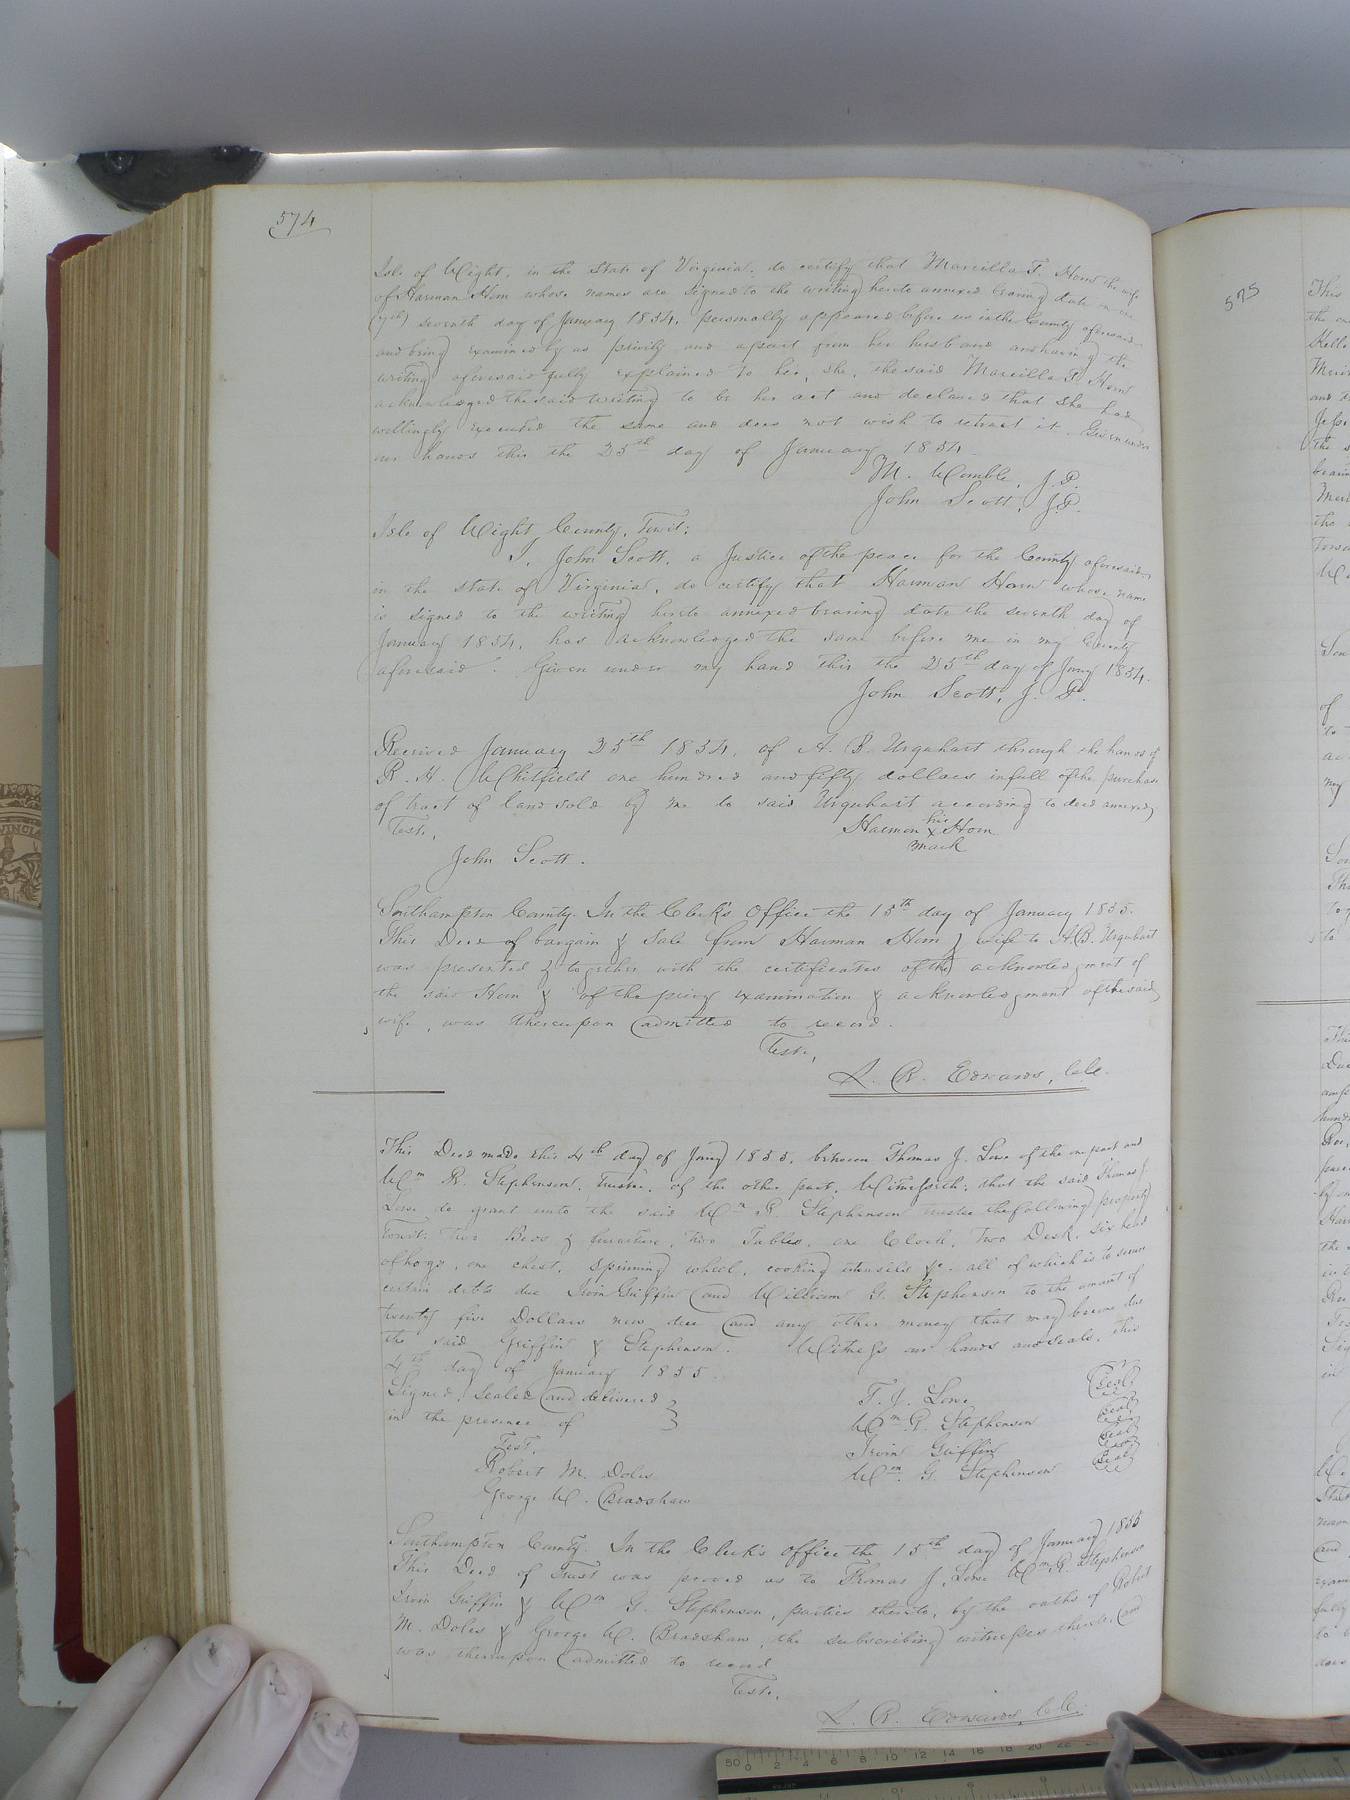 574
Isle of Wight, in the State of Virginia, do certify that Marcilla F. Horn the wife
of Harman Horn whose names are signed to the writing hereto annexed bearing date on the
(7th) seventh day of January 1854, personally appeared before us in the County aforesaid
and being examined by us privily and apart from her husband and having the
writing aforesaid fully explained to her, she, the said Marcilla F. Horn
acknowledged the said writing to be her act and declared that she had
willingly executed the same and does not wish to retract it. Given under
our hands this the 25th day of January 1854.
M. Womble, J.P.
John Scott, J.P.
Isle of Wight County, Towit:
I, John Scott, a Justice of the peace for the County aforesaid,
in the state of Virginia, do certify that Harman Horn whose name
is signed to the writing hereto annexed bearing date the seventh day of
January 1854, has acknowledged the same before me in my County
aforesaid. Given under my hand this the 25th day of Jany 1854.
John Scott, J. P.
Received January 25th 1854, of A. B. Urquhart through the hands of
R. H. Whitfield one hundred and fifty dollars in full of the purchase
of tract of land sold by me to said Urquhart according to deed annexed,
Test,
Harmon his x mark Horn
John Scott.
Southampton County. In the Clerk's Office the 15th day of January 1855.
This Deed of bargain & Sale from Harman Horn & wife to A.B. Urquhart
was presented & together with the certificates of the acknowledgment of
the said Horn & of the privy examination & acknowledgment of the said
wife, was thereupon admitted to record.
Test,
L. R. Edwards, C.C.
This Deed made this 4th day of Jany 1855, between Thomas J. Lowe of the one part and
Wm R. Stephenson, trustee, of the other part, Witnesseth: that the said Thomas J
Lowe do grant unto the said Wm R. Stephenson trustee the following property
Towit: Two Beds & furniture, Two Tables, one Clock, Two Desk, six head
of hogs, one chest, spinning wheel, cooking utensils &c. all of which is to secure
certain debts due Irvin Griffin and William G. Stephenson to the amount of
twenty five Dollars now due and any other money that may become due
the said Griffin & Stephenson. Witness our hands and seals, this
4th day of January 1855.
Signed, Sealed and delivered
in the presence of
T. J. Lowe Seal
Wm R. Stephenson Seal
Irvin Griffin Seal
Wm. G. Stephenson Seal
Test,
Robert M. Doles
George W. Bradshaw
Southampton County. In the Clerk's office the 15th day of January 1855
This Deed of Trust was proved as to Thomas J. Lowe Wm R. Stephenson
Irvin Griffin & Wm G. Stephenson, parties thereto, by the oaths of Robert
M. Doles & George W. Bradshaw, the subscribing witnesses thereto, and
was thereupon admitted to record
Test,
L. R. Edwards, C.C.
575
This